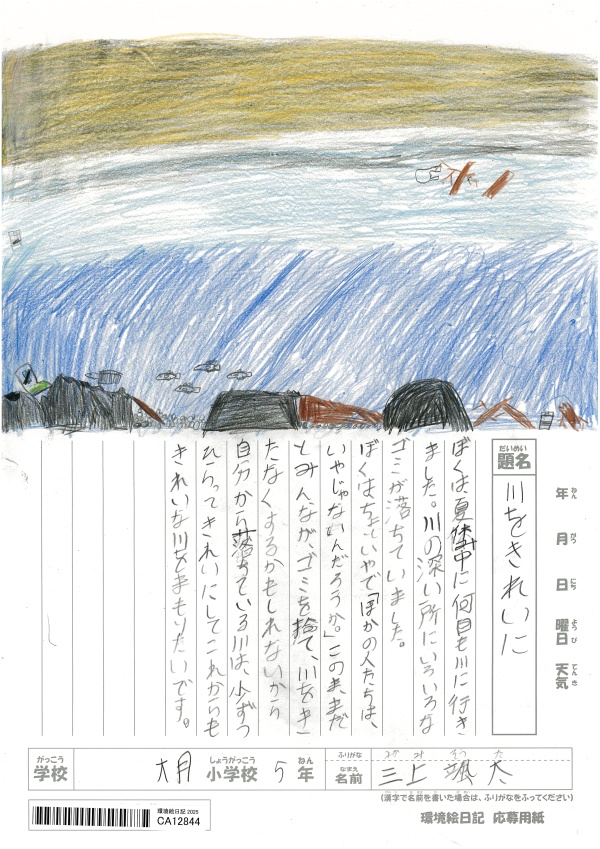 だいめい
題名
川をきれいに
年 ねん
月 がつ
日 にち
曜日 ようび
天気 てんき
ぼくは、夏休み中に何日も川に行き
ました。川の深い所にいろいろな
ゴミが落ちていました。
ぼくはちょっといやで「ほかの人たちは、
いやじゃないんだろうか。」このままだ
とみんながゴミを捨て、川をき
たなくするかもしれないから
自分から落ちている川は、少ずつ
ひろってきれいにしてこれからも
きれいな川をまもりたいです。
がっこう
学校
大月
しょうがっこう
小学校
5
ねん
年
ふりがな
なまえ
名前
みかみ そうた
三上 颯太
(漢字で名前を書いた場合は、ふりがなをふってください)
環境絵日記 2025
CA12844
環境絵日記 応募用紙